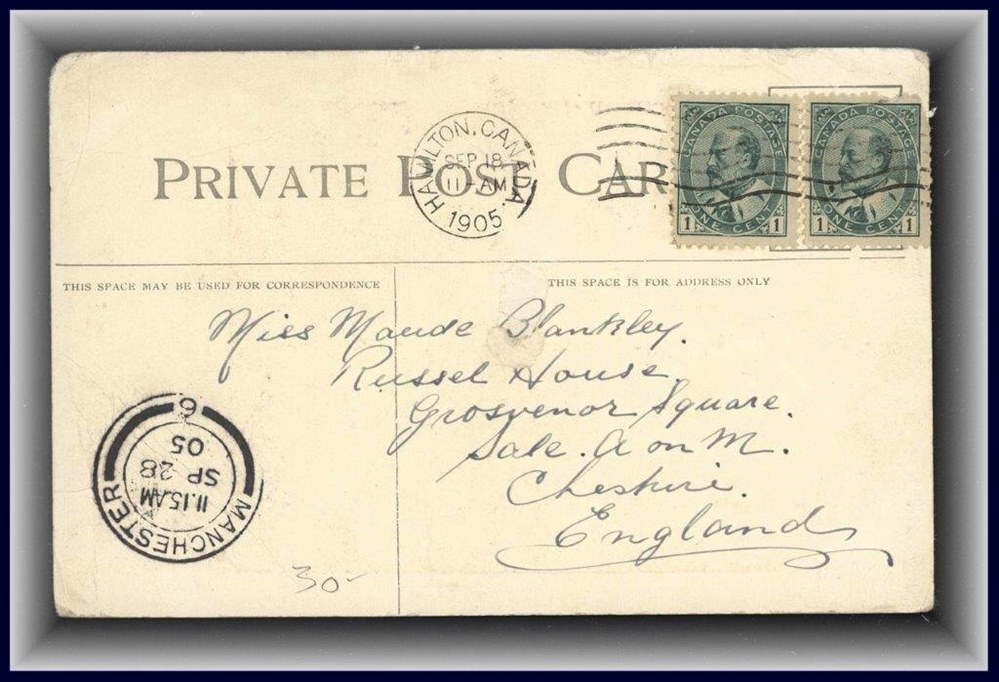 PRIVATE POST CARD
HAMILTON, CANADA
SEP 18
11-AM
1905
CANADA POSTAGE
1 ONE CENT 1
CANADA POSTAGE
1 ONE CENT 1
THIS SPACE MAY BE USED FOR CORRESPONDENCE
THIS SPACE IS FOR ADDRESS ONLY
Miss Maude Blankley.
Russel House
Grosvenor Square.
Sale. A on M.
Cheshire.
England
MANCHESTER
11.15AM
SP 28
05
6
30-